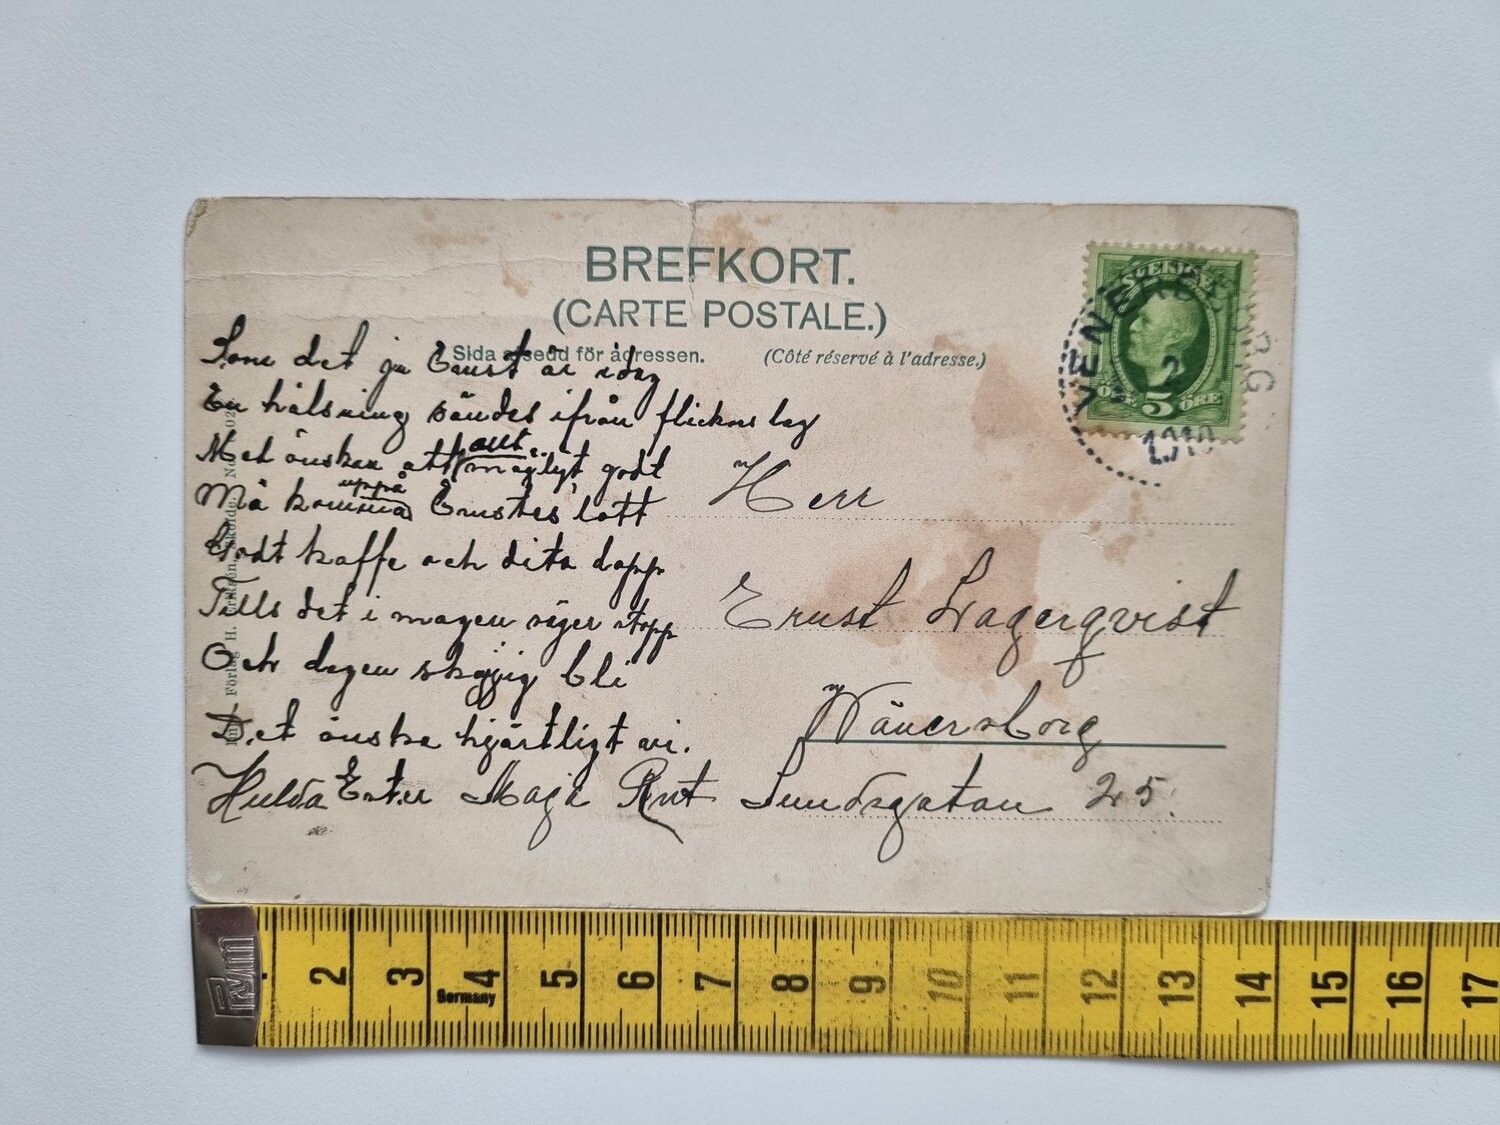 BREFKORT.
(CARTE POSTALE.)
Sida afsedd för adressen. (Côté réservé à l'adresse.)
Som det ju Ernst är idag
En hälsning sändes ifrån flickors lag
Med önskan att allt möjligt godt
Må komma uppå Ernstes lott
Godt kaffe och dito dopp
Tills det i magen säger stopp
Och dagen skojjig bli
Det önska hjärtligt vi.
Hulda Ester Maja Rut
Herr
Ernst Lagerqvist
Wänersborg
Sundsgatan 25.
SVERIGE
5 ÖRE
VENERSBORG
2
1910
Förlag H.
Prym
Germany
2 3 4 5 6 7 8 9 10 11 12 13 14 15 16 17